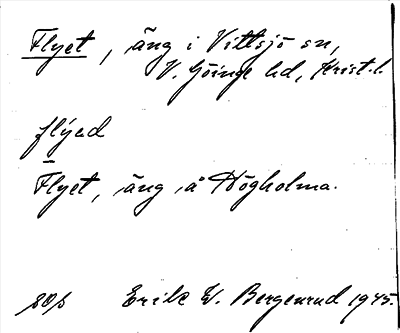 Flyet, äng i Vittsjö sn,
V. Göinge hd, Krist. l.
flyed
Flyet, äng å Högholma.
Erik W. Bergenrud 1945.